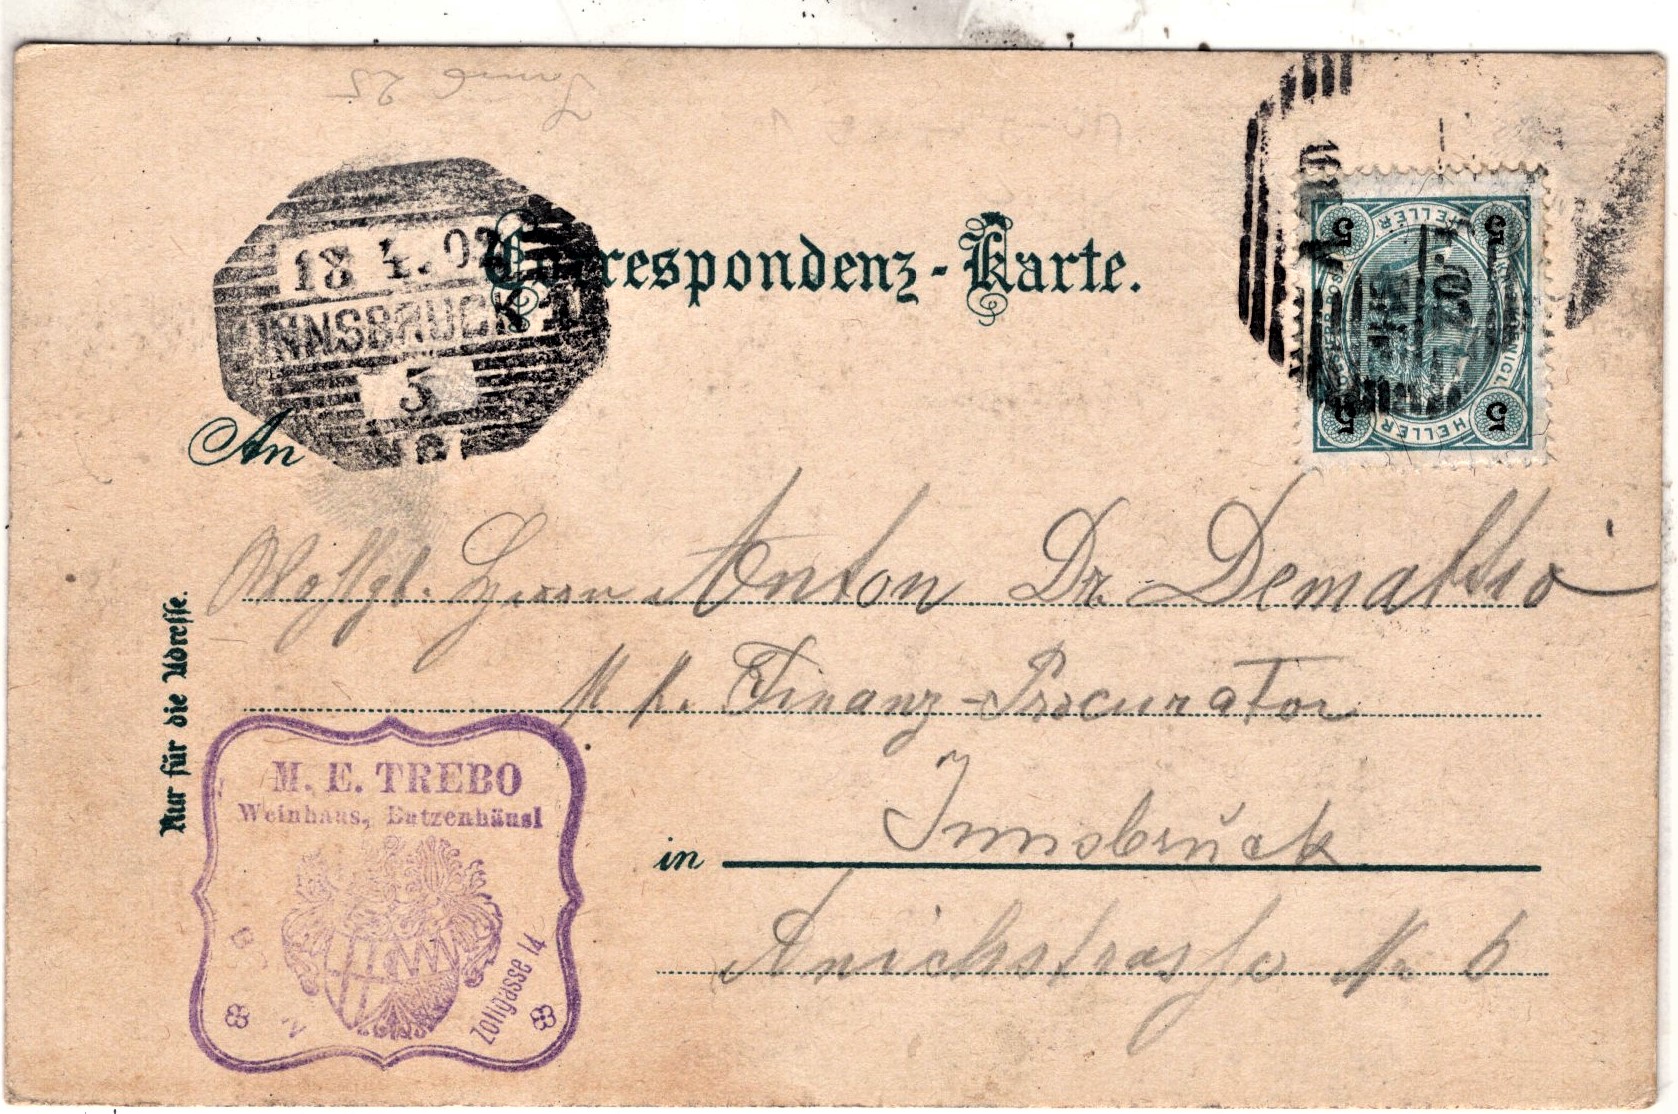 Correspondenz-Karte.
18 4. 02
INNSBRUCK 1
5
An
5 HELLER 5
5 HELLER 5
Herrn Anton Dr. Demattio
k. k. Finanz-Procurator
in Innsbruck
Anichstrasse Nr 6
Nur für die Adresse.
M. E. TREBO
Weinhaus, Batzenhäusl
Zollgasse 14